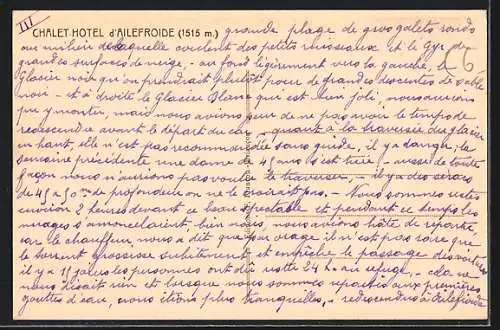 III
CHALET-HOTEL d'AILEFROIDE (1515 m.) grande plage de gros galets ronds
au milieu de laquelle coulent des petits ruisseaux et le Gyr, de
grandes surfaces de neige, - au fond légèrement vers la gauche, le
Glacier noir qu'on prendrait plutôt pour de grandes descentes de sable
noir - et à droite le Glacier Blanc qui est bien joli, nous aurions
pu y monter, mais nous avions peur de ne pas avoir le temps de
redescendre avant le départ du car - quant à la traversée du glacier
en haut, elle n'est pas recommandée sans guide, il y a danger; la
semaine précédente une dame de 45 ans s'est tuée - aussi de toute
façon nous n'aurions pas voulu le traverser, - il y a des séracs
de 45 à 50 m de profondeur on ne le dirait pas. - Nous sommes restés
environ 2 heures devant ce beau spectacle et pendant ce temps les
nuages s'amoncelaient. bien nous, nous avions hâte de repartir
car le chauffeur, nous a dit que par orage il n'est pas rare que
le torrent grossisse subitement et empêche le passage des voitures
il y a 15 jours les personnes ont dû rester 24 h. au refuge, - cela ne
nous disait rien et lorsque nous sommes repartis aux premières
gouttes d'eau, nous étions plus tranquilles, - redescendus à Ailefroide